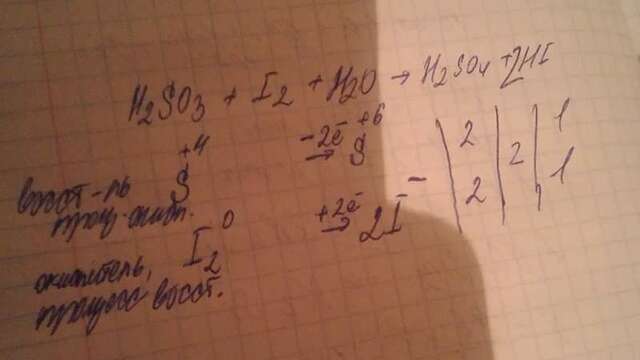 H₂SO₃ + I₂ + H₂O → H₂SO₄ + 2HI
восст-ль S⁺⁴ -2ē → S⁺⁶ | 2 | 2 | 1
проц. окисл.
окислитель, I₂⁰ +2ē → 2I⁻ | 2 | | 1
процесс восст.